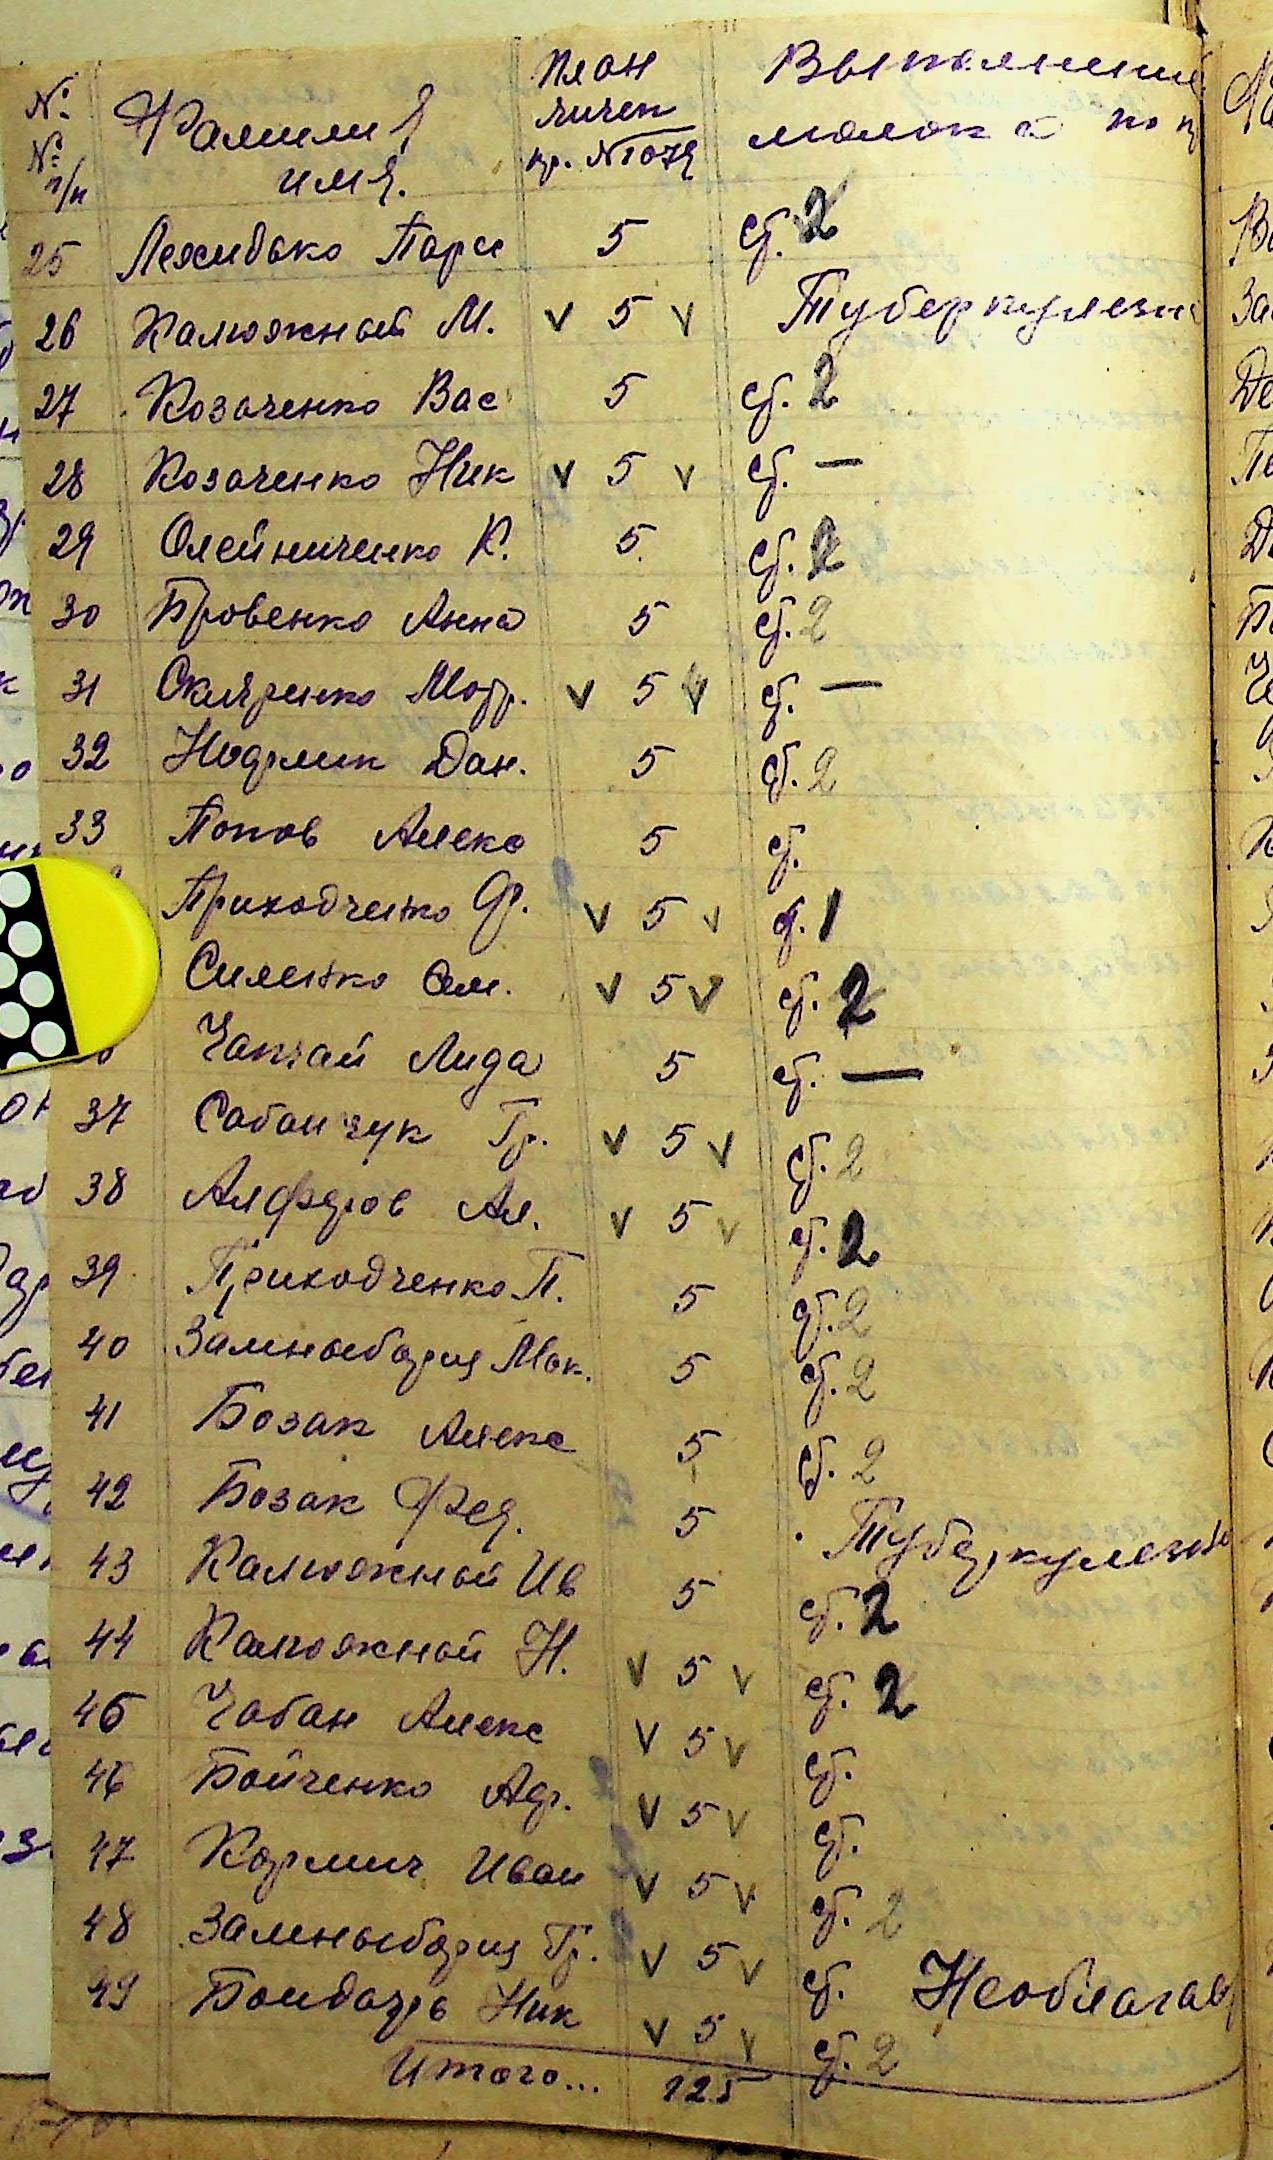 № № п/п Фамилия имя. План яичек пр. №1079 Выполнение молока по
25 Лехидько Парас 5 сб. 2
26 Калюжный М. v 5 v Туберкулезн
27 Козаченко Вас 5 сб. 2
28 Козаченко Ник v 5 v сб. —
29 Олейниченко К. 5 сб. 2
30 Бровенко Анна 5 сб. 2
31 Скляренко Мотр. v 5 v сб. —
32 Дан. 5 сб. 2
33 Попов Алекс 5 сб.
Приходченко Ф. v 5 v сб. 1
Силенко Сем. v 5 v сб. 2
Чапчай Лида 5 сб. —
37 Сабанчук Гр. v 5 v сб. 2
38 Алфёров Ал. v 5 v сб. 2
39 Приходченко П. 5 сб. 2
40 Замныборщ Мак. 5 сб. 2
41 Бозак Алекс 5 сб. 2
42 Бозак Фед. 5 Туберкулезн
43 Калюжный Ив 5 сб. 2
44 Калюжный Н. v 5 v сб. 2
45 Чабан Алекс v 5 v сб.
46 Бойченко Адр. v 5 v сб.
47 Кормич Иван v 5 v сб. 2
48 Замныборщ Гр. v 5 v сб. Необлагав
49 Бондарь Ник v 5 v сб. 2
Итого... 125